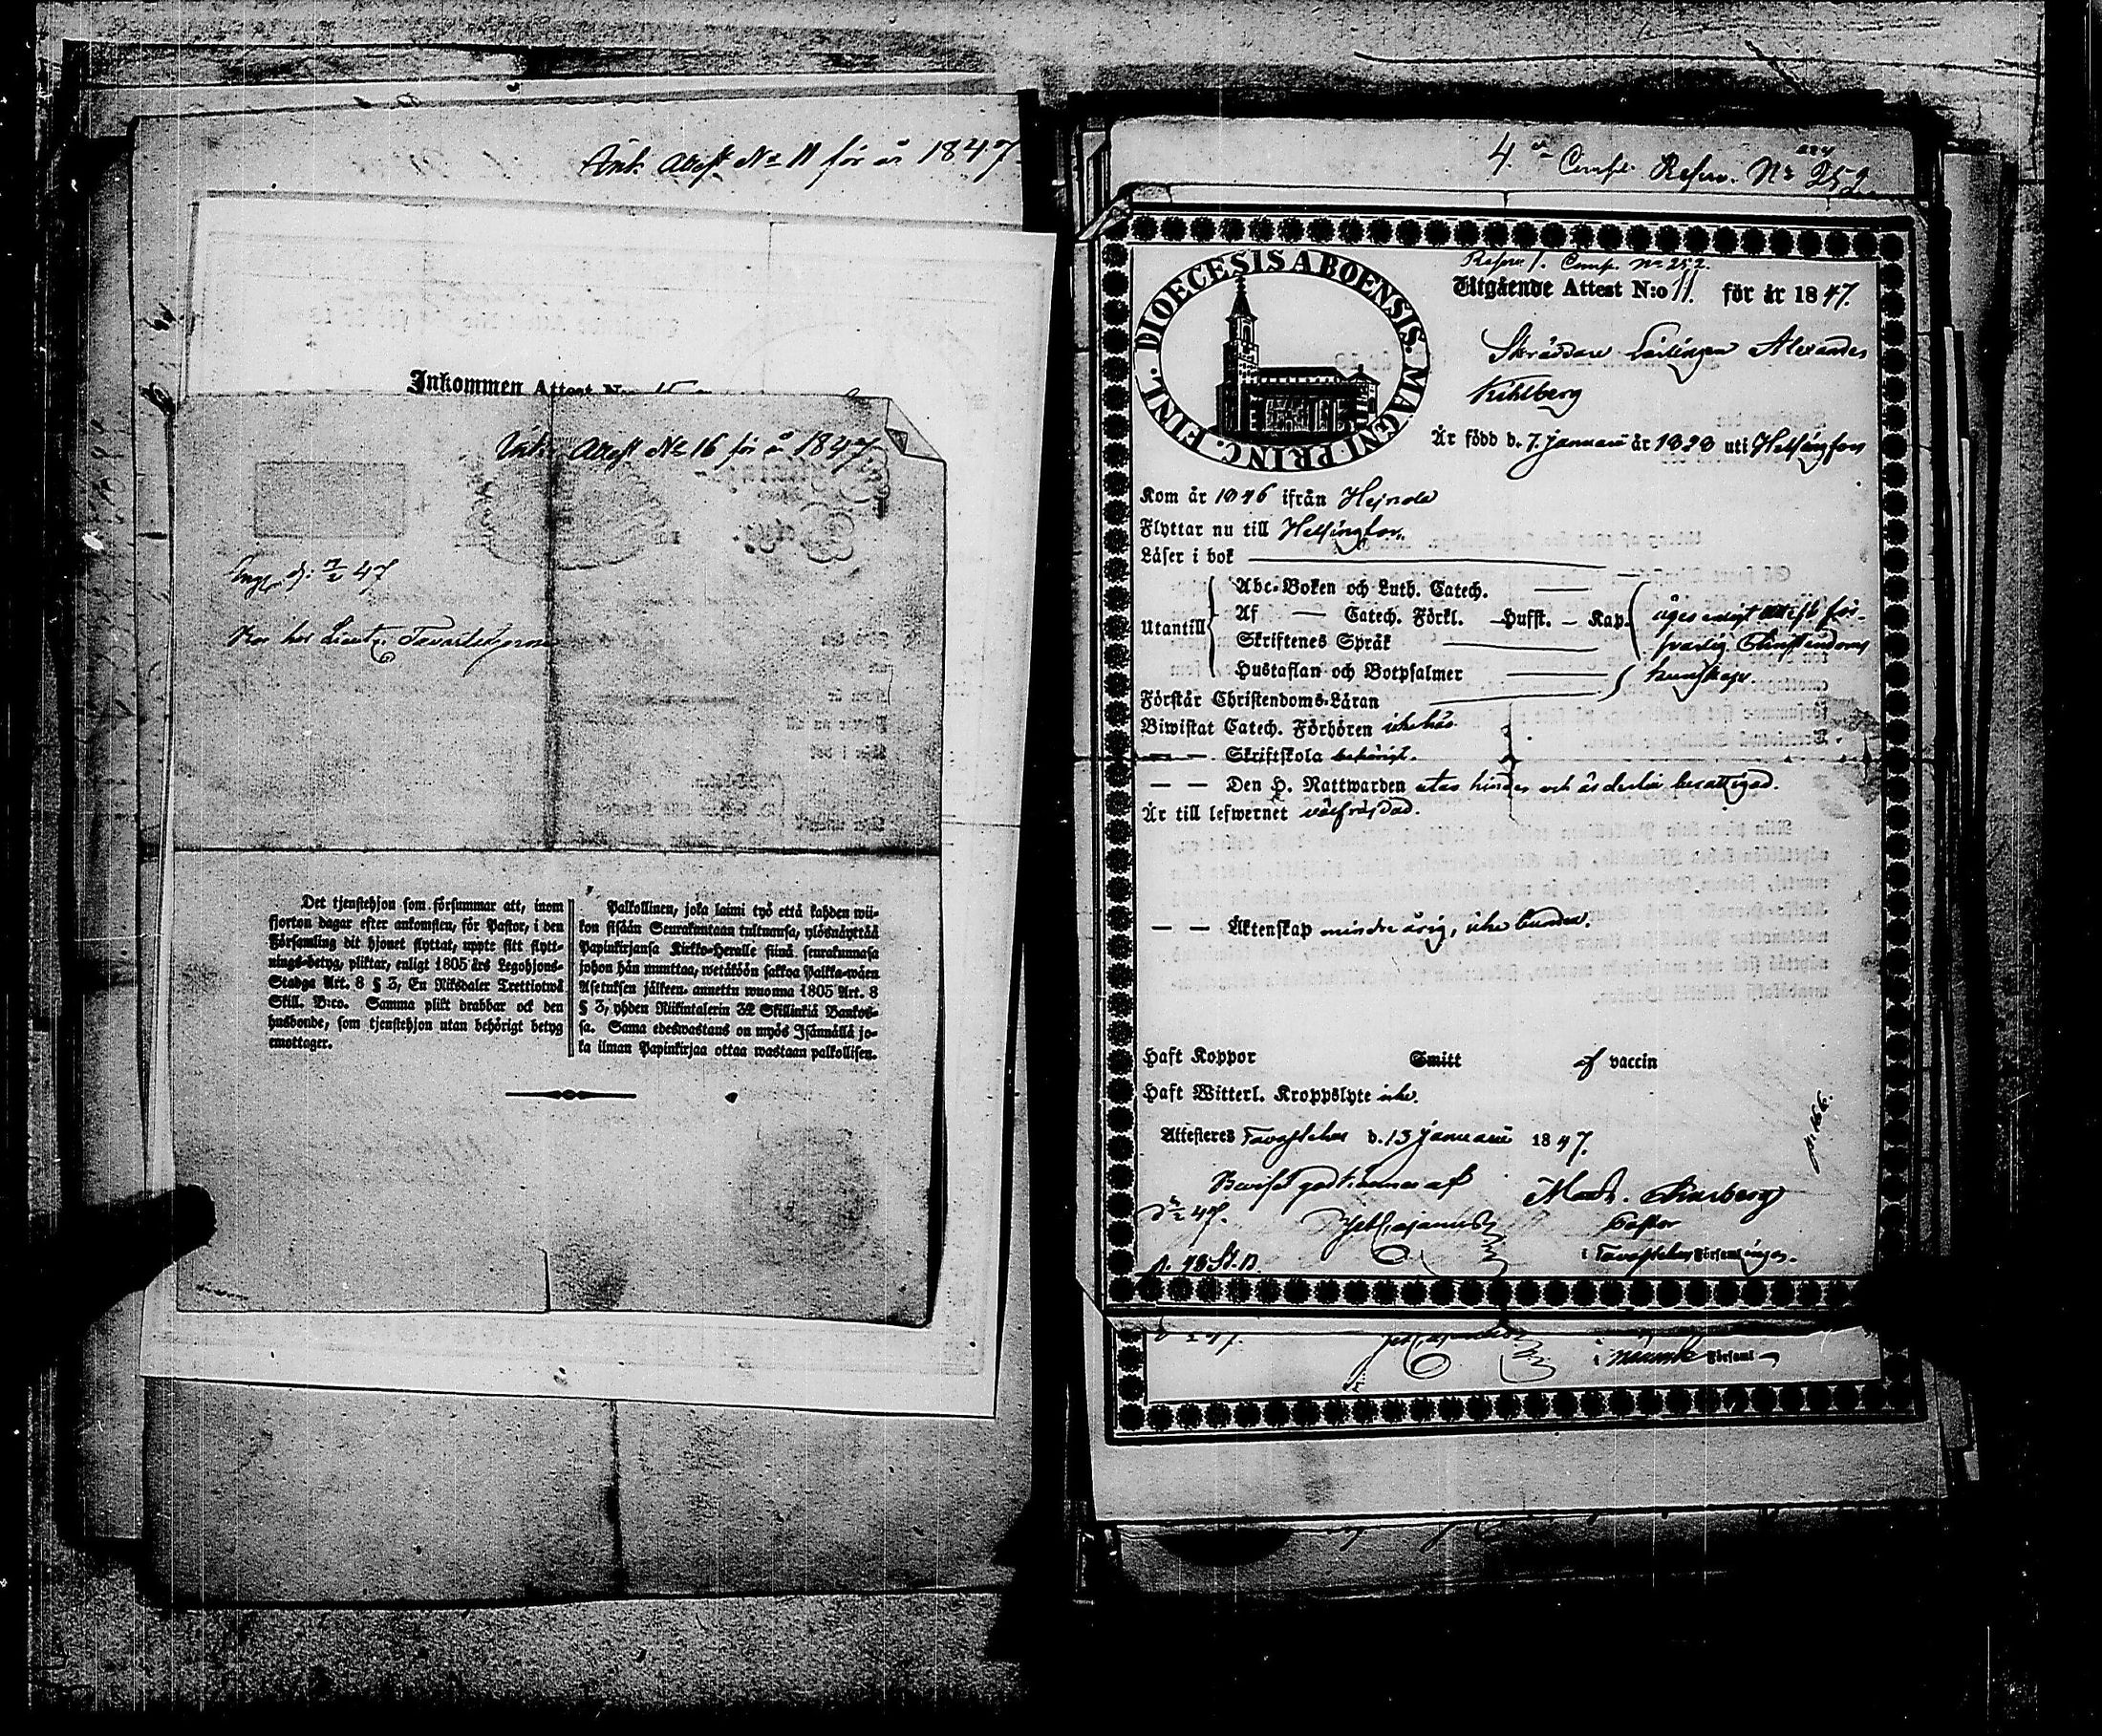 Ink. Attest No 11 för år 1847
Inkommen Attest N:o
Ink. Attest No 16 för år 1847
d. 9/2 47
hos Lieutn.
Det tjenstehjon som försummar att, inom
fjorton dagar efter ankomsten, för Pastor, i den
Församling dit hjonet flyttat, uppte sitt flytt-
nings-betyg, pliktar, enligt 1805 års Legohjons-
Stadga Art. 8 § 3, En Riksdaler Trettiotwå
Skill. B:co. Samma plikt drabbar ock den
husbonde, som tjenstehjon utan behörigt betyg
emottager.
Palkollinen, joka laimi lyö että kahden wii-
kon sisään Seurakuntaan tultuansa, ylösnäyttää
Papinkirjansa Kirkko-Herralle siinä seurakunnasa
johon hän muuttaa, wetäköön sakkoa Palkka-wäen
Asetuksen jälkeen annettu wuonna 1805 Art. 8
§ 3, yhden Riikintalerin 32 Skillinkiä Bankos-
sa. Sama edeswastaus on myös Isännällä jo-
ka ilman Papinkirjaa ottaa wastaan palkollisen.
4 Comp. Reserv. No 252
DIOECESIS ABOENSIS. MAGNI PRINC. FINL.
Reserv f. Comp. No 252.
Utgående Attest N:o 11. för år 1847.
Skräddare Lärlingen Alexander
Kihlberg
Är född d. 7 Januarii år 1828 uti Helsingfors
Kom år 1846 ifrån Hejnola
Flyttar nu till Helsingfors.
Läser i bok
Abc-Boken och Luth. Catech.
Utantill Af — Catech. Förkl. — Hufst. — Kap. äger enligt attest för-
Skriftenes Språk svarlig Christendoms
Hustaflan och Botpsalmer kunskap.
Förstår Christendoms-Läran
Biwistat Catech. Förhören icke här.
— — Skriftskola behörigt.
— — Den H. Nattwarden utan hinder och är dertill berättigad.
Är till lefwernet välfräjdad.
— — Äktenskap minderårig, icke bunden.
Haft Koppor Smitt af vaccin
Haft Witterl. Kroppslyte icke.
Attesteres Tavastehus d. 13 Januarii 1847.
p. 166.
Beviset godkännes af
d. 9/2 47.
Pastor
i Tavastehus Församlingar.
i Församl